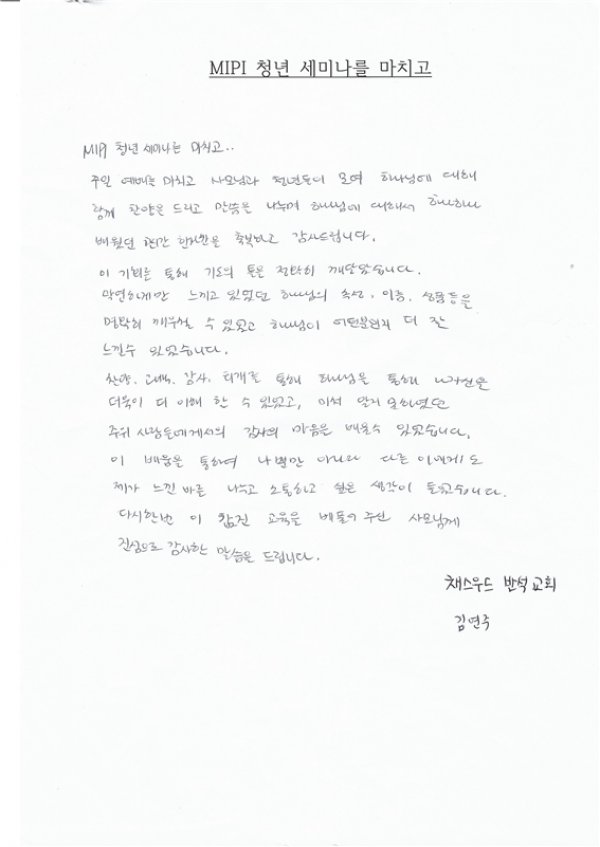 MIPI 청년 세미나를 마치고
MIPI 청년 세미나를 마치고..
주일 예배를 마치고 사모님과 청년들이 모여 하나님에 대해
함께 찬양을 드리고 말씀을 나누며 하나님에 대해서 하나하나
배웠던 시간 한시간을 축복하고 감사드립니다.
이 기회를 통해 기도의 틀은 정확히 깨달았습니다.
막연하게만 느끼고 있었던 하나님의 속성, 이름, 성품등을
명확히 깨우칠 수 있었고 하나님이 어떤분인지 더 잘
느낄수 있었습니다.
찬양, 고백, 감사, 회개를 통해 하나님을 통해 나 자신을
더욱이 더 이해 할 수 있었고, 미처 알지 못하였던
주위 사람들에게서의 감사의 마음을 배울수 있었습니다.
이 배움을 통하여 나뿐만 아니라 다른 이에게도
제가 느낀 바를 나누고 소통하고 싶은 생각이 들었습니다.
다시한번 이 값진 교육을 베풀어 주신 사모님께
진심으로 감사한 말씀을 드립니다.
채스우드 반석교회
김연주